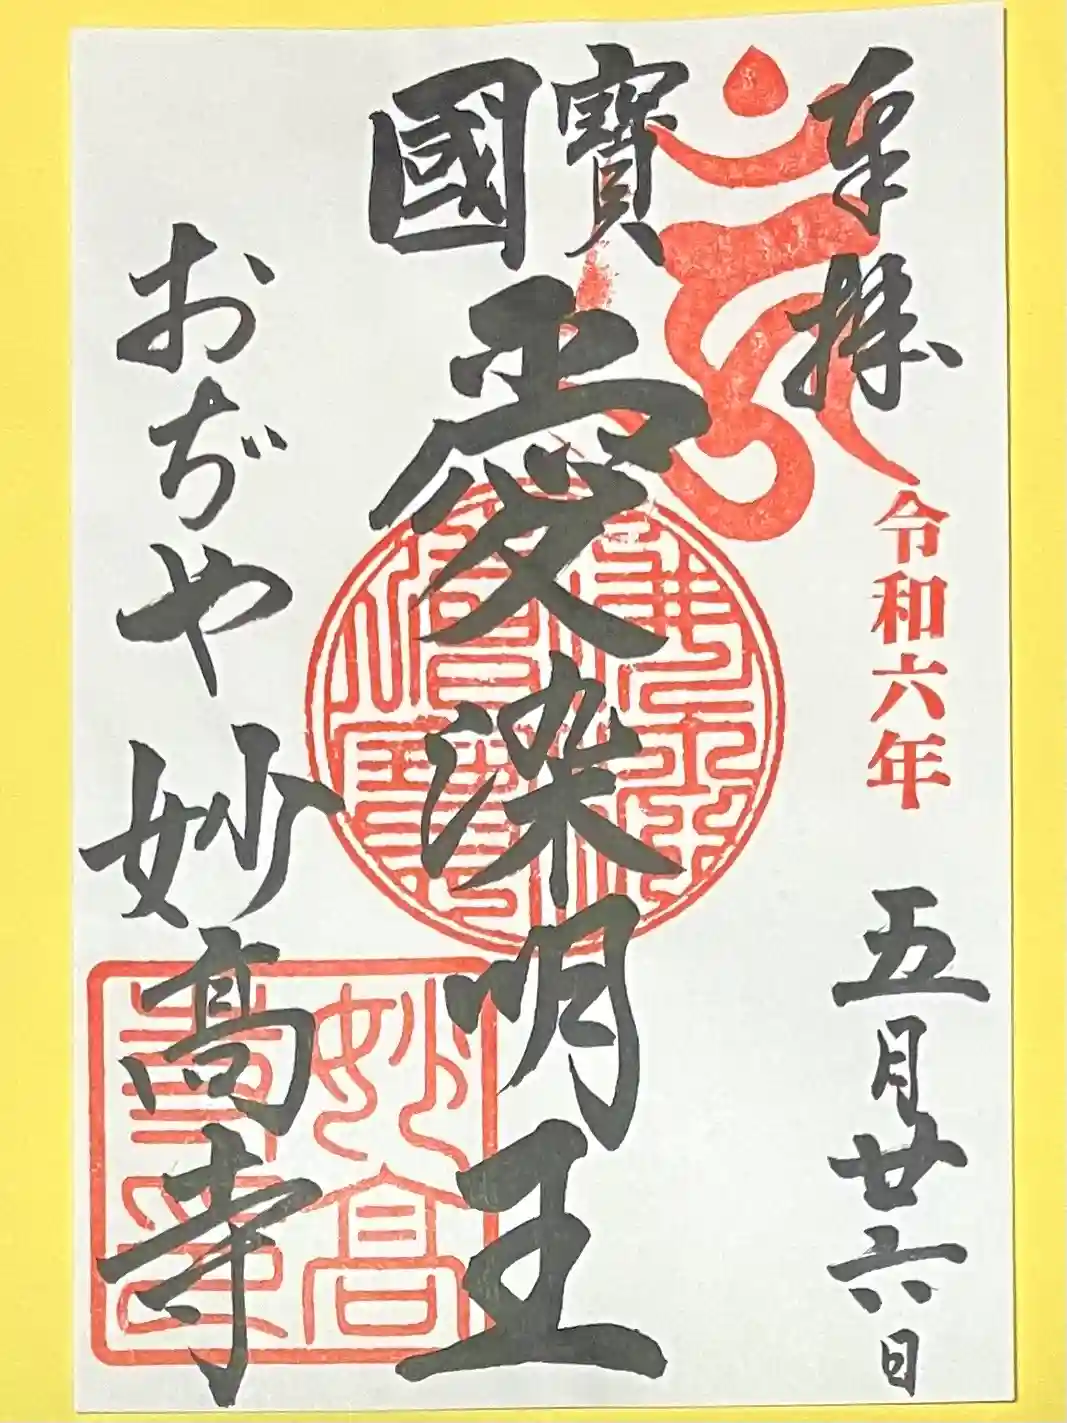 奉拝
令和六年
五月廿六日
國寶
愛染明王
おぢや
妙高寺
妙高
寺印
佛法僧寶